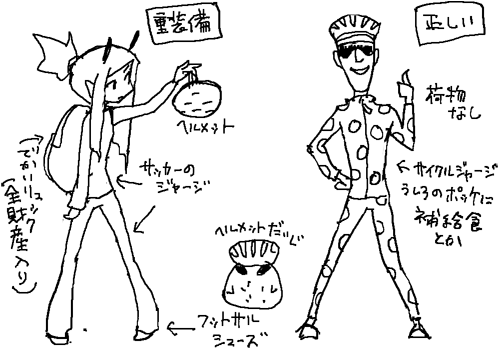 重装備
ヘルメット
でかいリュック
(全財産入り)
サッカーの
ジャージ
ヘルメットだいじ
フットサル
シューズ
正しい
荷物
なし
サイクルジャージ
うしろのポッケに
補給食
とか